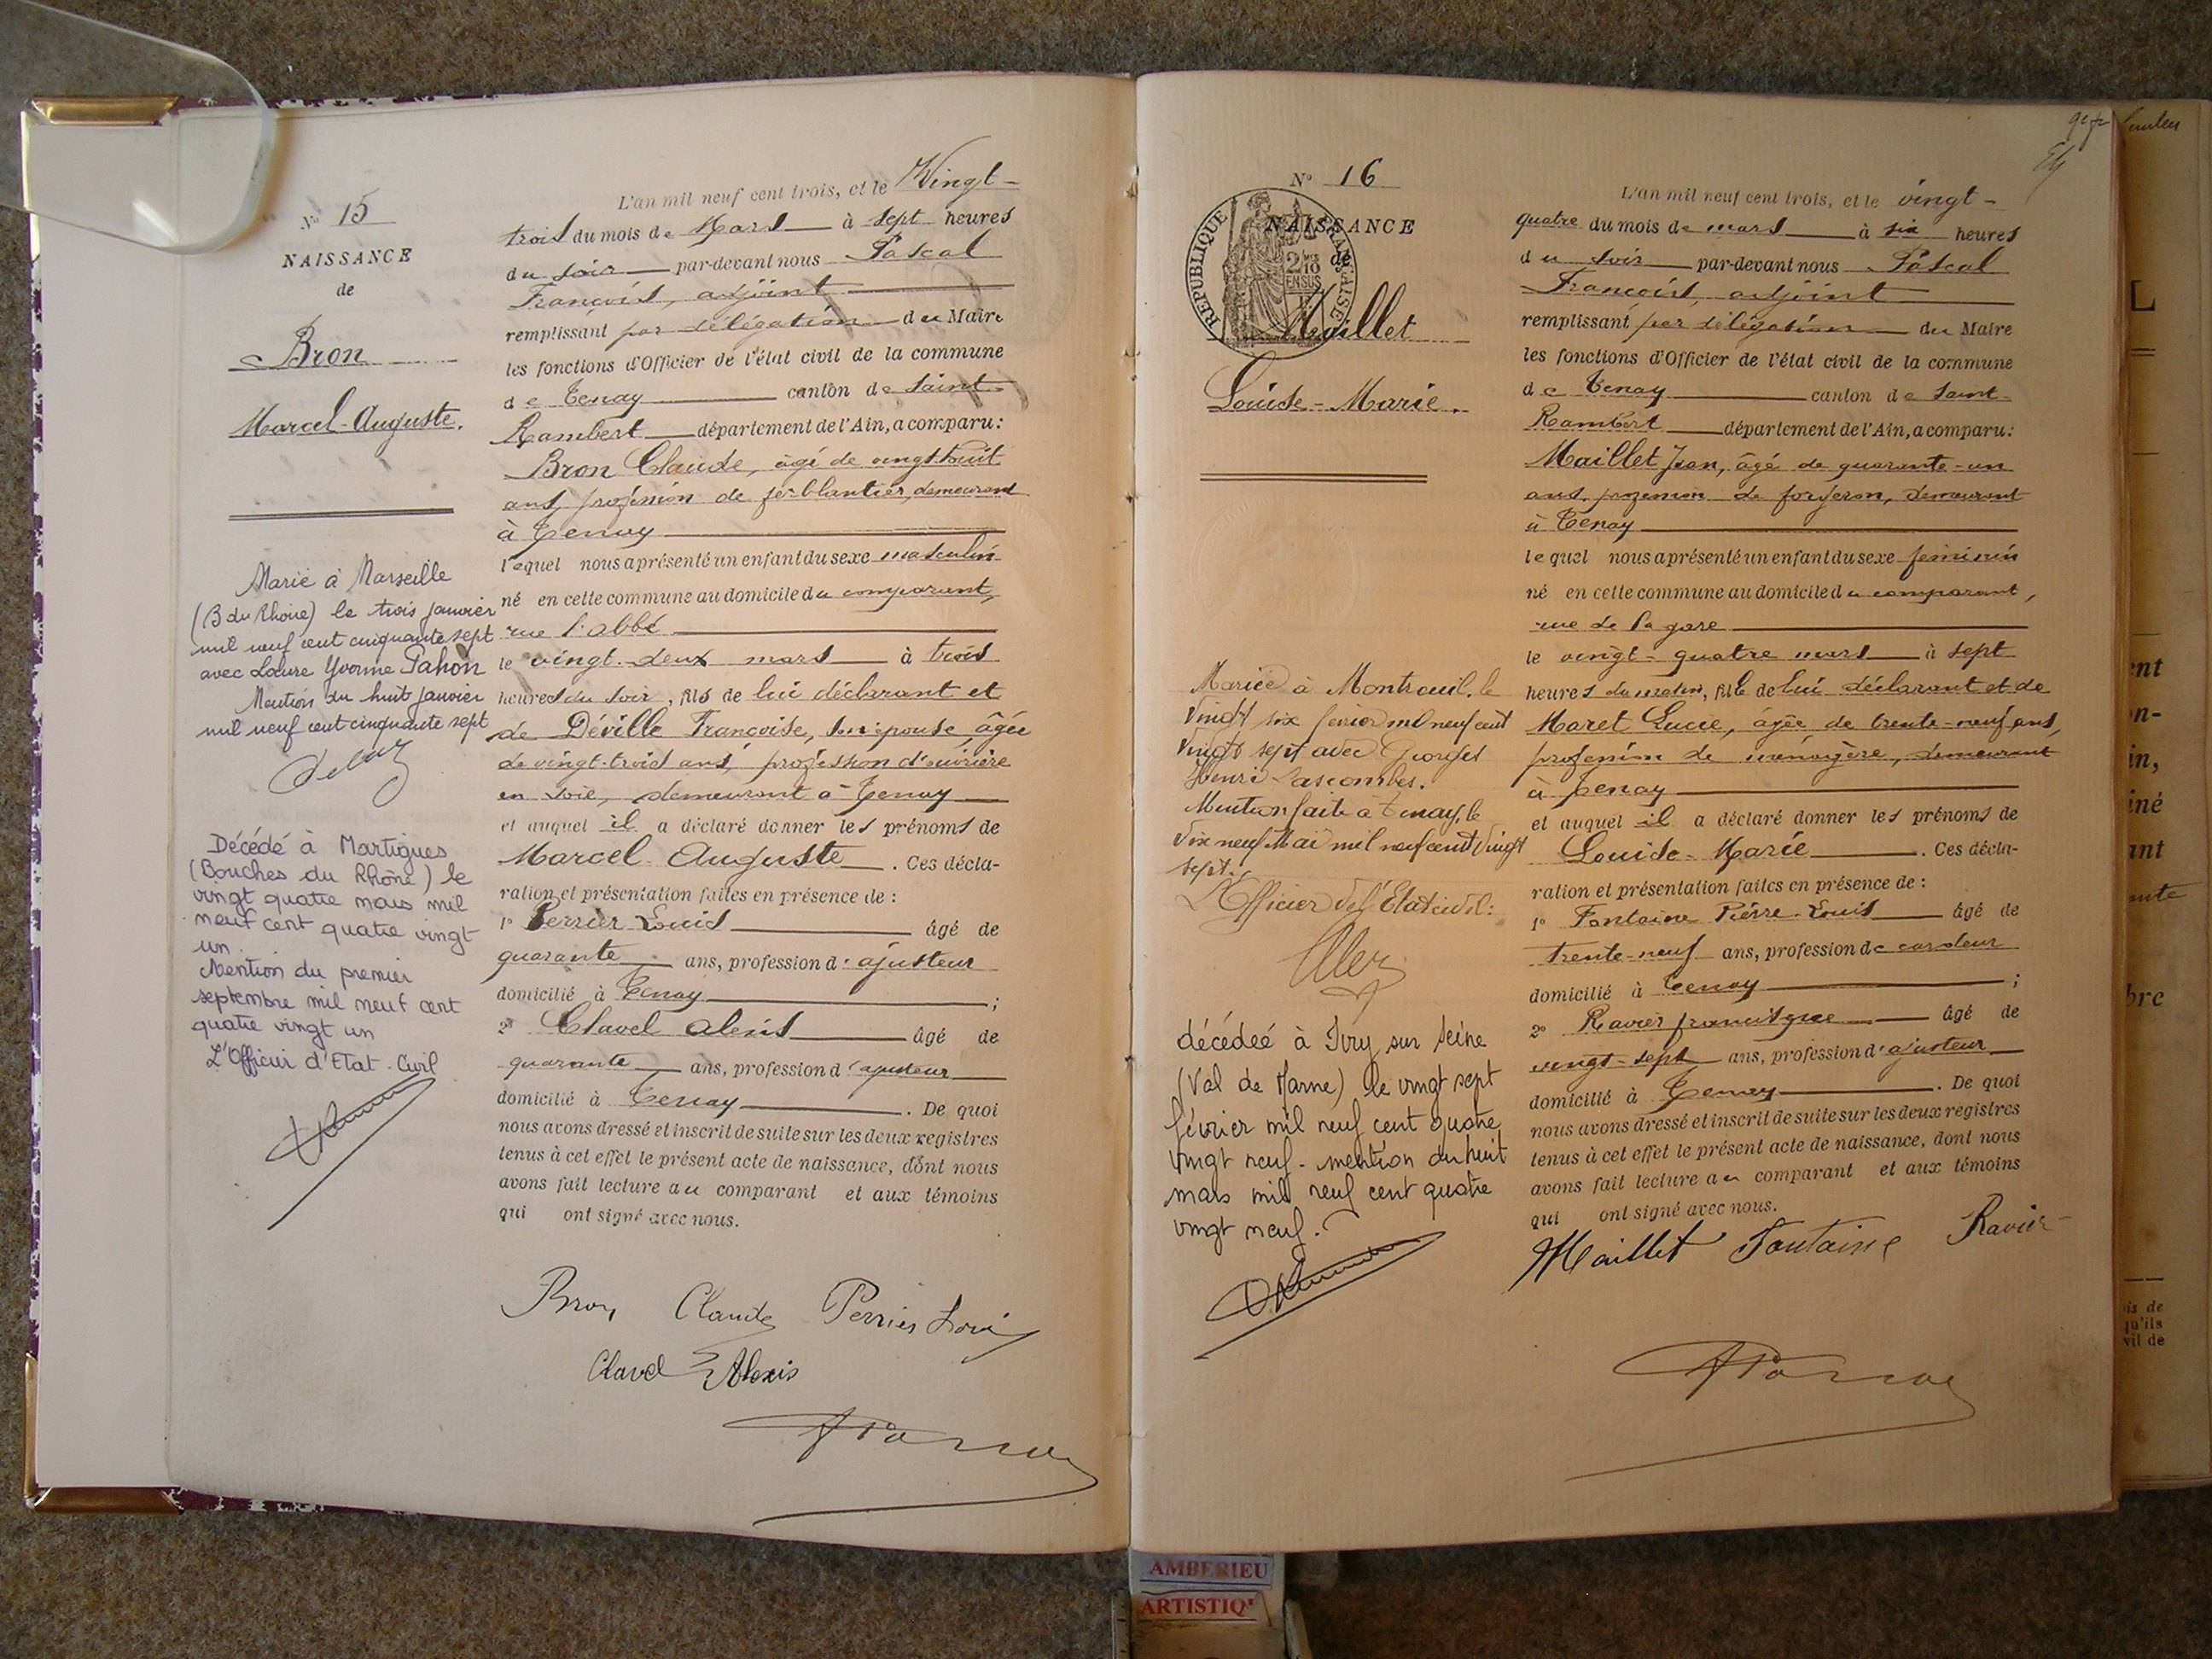 N° 15
NAISSANCE
de
Bron
Marcel-Auguste.
Marié à Marseille
(B du Rhône) le trois janvier
mil neuf cent cinquante sept
avec Laure Yvonne Pahon
Mention du huit janvier
mil neuf cent cinquante sept
Décédé à Martigues
(Bouches du Rhône) le
vingt quatre mars mil
neuf cent quatre vingt
un.
Mention du premier
septembre mil neuf cent
quatre vingt un
L'Officier d'Etat-Civil
L'an mil neuf cent trois, et le Vingt-
trois du mois de Mars à sept heures
du soir par-devant nous Pascal
François, adjoint
remplissant par délégation du Maire
les fonctions d'Officier de l'état civil de la commune
de Tenay canton de Saint-
Rambert département de l'Ain, a comparu:
Bron Claude, âgé de vingt-huit
ans, profession de ferblantier, demeurant
à Tenay
lequel nous a présenté un enfant du sexe masculin
né en cette commune au domicile du comparant,
rue l'abbé
le vingt-deux mars à trois
heures du soir, fils de lui déclarant et
de Déville Françoise, son épouse âgée
de vingt-trois ans, profession d'ouvrière
en soie, demeurant à Tenay
et auquel il a déclaré donner les prénoms de
Marcel-Auguste. Ces décla-
ration et présentation faites en présence de :
1° Perrier Louis âgé de
quarante ans, profession d'ajusteur
domicilié à Tenay ;
2° Clavel Alexis âgé de
quarante ans, profession d'ajusteur
domicilié à Tenay. De quoi
nous avons dressé et inscrit de suite sur les deux registres
tenus à cet effet le présent acte de naissance, dont nous
avons fait lecture au comparant et aux témoins
qui ont signé avec nous.
Bron Claude Perrier Louis
Clavel Alexis
N° 16
NAISSANCE
de
REPUBLIQUE FRANÇAISE
2/10 EN SUS
Maillet
Louise-Marie.
Mariée à Montreuil, le
vingt six février mil neuf cent
vingt sept avec Georges
Henri Lascombes.
Mention faite à Tenay, le
dix neuf Mai mil neuf cent vingt
sept.
L'Officier de l'Etat civil:
décédée à Ivry sur Seine
(Val de Marne) le vingt sept
février mil neuf cent quatre
vingt neuf - mention du huit
mars mil neuf cent quatre
vingt neuf.
L'an mil neuf cent trois, et le vingt-
quatre du mois de mars à six heures
du soir par-devant nous Pascal
François, adjoint
remplissant par délégation du Maire
les fonctions d'Officier de l'état civil de la commune
de Tenay canton de Saint-
Rambert département de l'Ain, a comparu:
Maillet Jean, âgé de quarante-un
ans, profession de forgeron, demeurant
à Tenay
lequel nous a présenté un enfant du sexe féminin
né en cette commune au domicile du comparant,
rue de la gare
le vingt-quatre mars à sept
heures du matin, fille de lui déclarant et de
Maret Lucie, âgée de trente-neuf ans,
profession de ménagère, demeurant
à Tenay
et auquel il a déclaré donner les prénoms de
Louise-Marie. Ces décla-
ration et présentation faites en présence de :
1° Fontaine Pierre-Louis âgé de
trente-neuf ans, profession de cardeur
domicilié à Tenay ;
2° Ravier francisque âgé de
vingt-sept ans, profession d'ajusteur
domicilié à Tenay. De quoi
nous avons dressé et inscrit de suite sur les deux registres
tenus à cet effet le présent acte de naissance, dont nous
avons fait lecture au comparant et aux témoins
qui ont signé avec nous.
Maillet Fontaine Ravier
AMBERIEU
ARTISTIQ